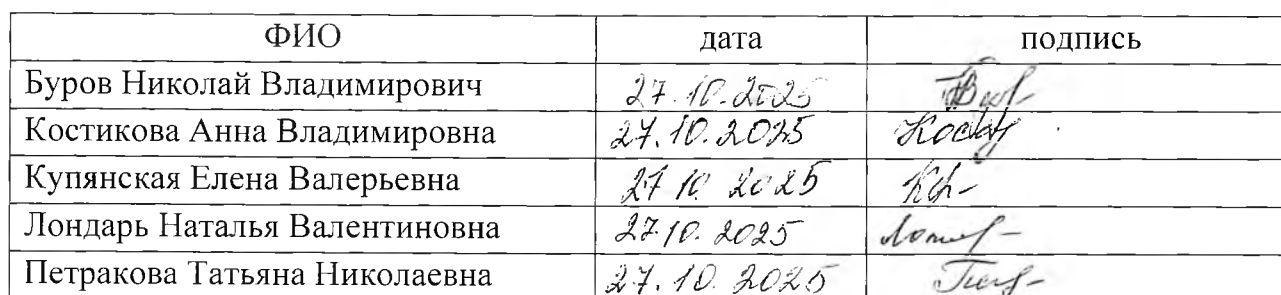 ФИО дата подпись
Буров Николай Владимирович 27.10.2025
Костикова Анна Владимировна 27.10.2025
Купянская Елена Валерьевна 27 10. 2025
Лондарь Наталья Валентиновна 27.10. 2025
Петракова Татьяна Николаевна 27.10.2025